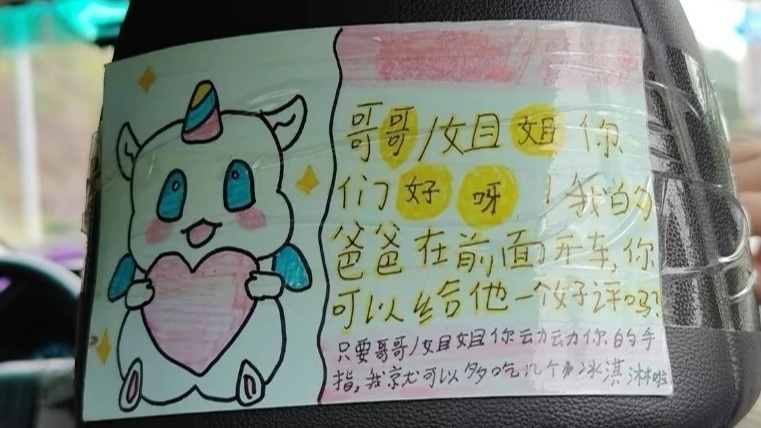 哥哥/姐姐你
们好呀！我的
爸爸在前面开车,你
可以给他一个好评吗?
只要哥哥/姐姐你动动你的手
指,我就可以多吃几个冰淇淋啦